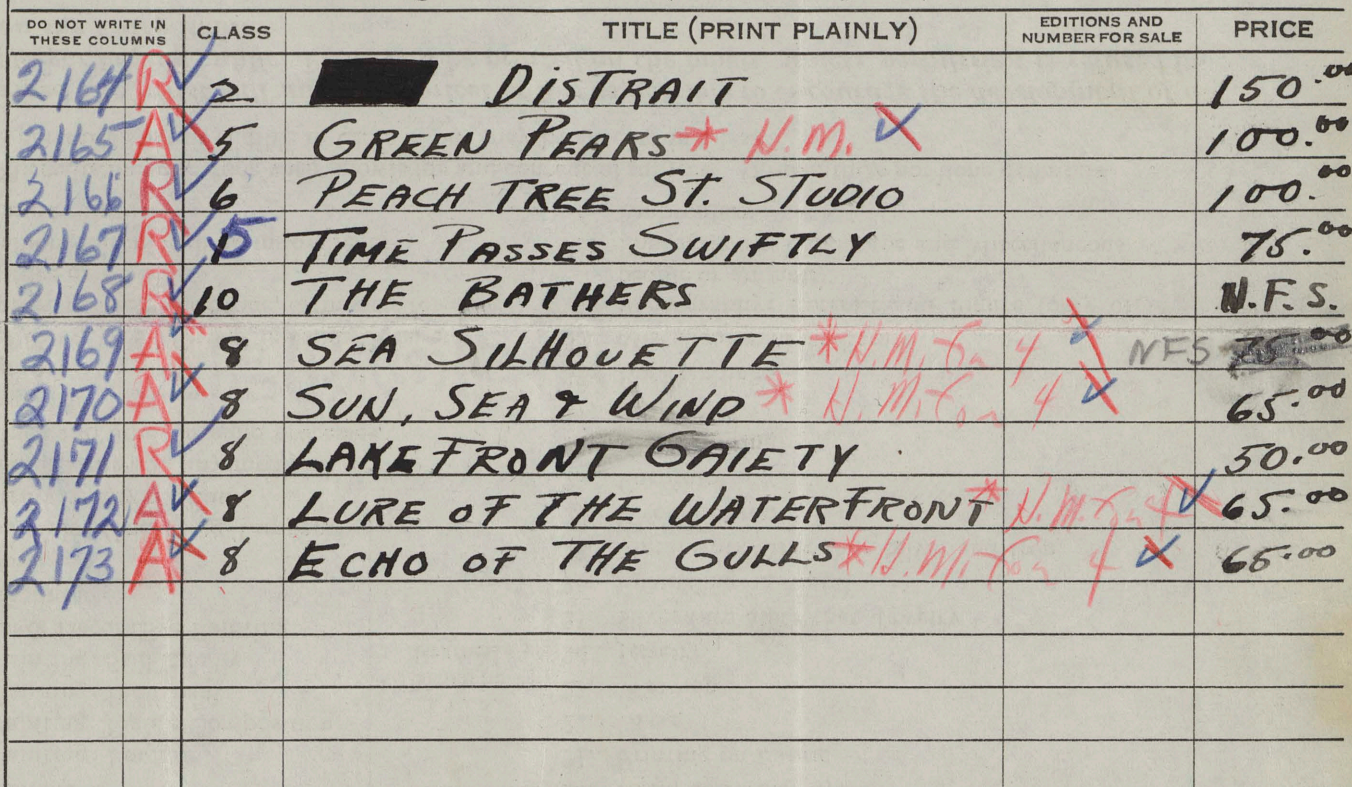 DO NOT WRITE IN THESE COLUMNS CLASS TITLE (PRINT PLAINLY) EDITIONS AND NUMBER FOR SALE PRICE
2164 R 2 DISTRAIT 150.00
2165 A 5 GREEN PEARS * H.M. 100.00
2166 R 6 PEACH TREE ST. STUDIO 100.00
2167 R 5 TIME PASSES SWIFTLY 75.00
2168 R 10 THE BATHERS N.F.S.
2169 A 8 SEA SILHOUETTE * H.M. for 4 NFS
2170 A 8 SUN, SEA & WIND * H.M. for 4 65.00
2171 R 8 LAKE FRONT GAIETY 50.00
2172 A 8 LURE OF THE WATERFRONT * H.M. for 4 65.00
2173 A 8 ECHO OF THE GULLS * H.M. for 4 65.00